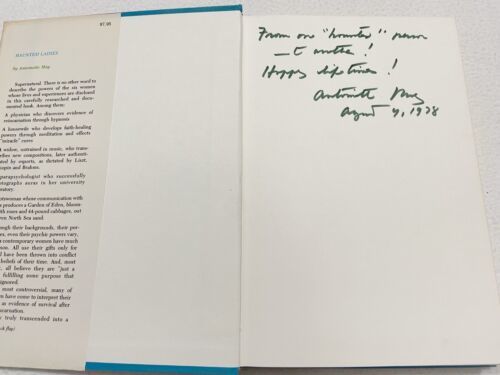 $7.95
HAUNTED LADIES
by Antoinette May
Supernatural. There is no other word to
describe the powers of the six women
whose lives and experiences are disclosed
in this carefully researched and docu-
mented book. Among them:
A physician who discovers evidence of
reincarnation through hypnosis
A housewife who develops faith-healing
powers through meditation and effects
"miracle" cures
widow, untrained in music, who trans-
ribes new compositions, later authenti-
ated by experts, as dictated by Liszt,
hopin and Brahms.
parapsychologist who successfully
otographs auras in her university
oratory.
otswoman whose communication with
s produces a Garden of Eden, bloom-
with roses and 44-pound cabbages, out
ren North Sea sand.
ough their backgrounds, their per-
es, even their psychic powers vary,
contemporary women have much
mon. All use their gifts only for
l have been thrown into conflict
beliefs of their time. And, most
, all believe they are "just a
fulfilling some purpose that
ignored.
most controversial, many of
en have come to interpret their
as evidence of survival after
ncarnation.
y truly transcended into a
ck flap)
From one "haunted" person
—to another!
Happy lifetimes!
Antoinette May
August 4, 1978